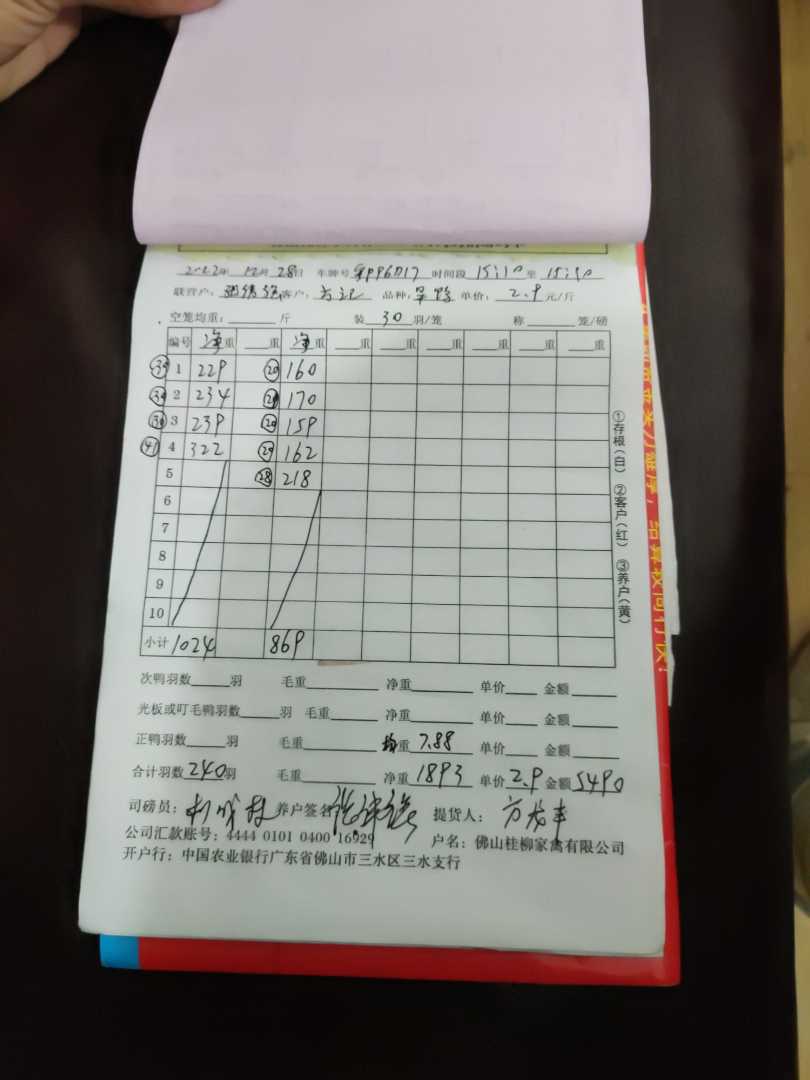 2022年 12月 28日 车牌号 时间段 15:10 至 15:50
联营户: 客户: 方记 品种: 单价: 2.9 元/斤
空笼均重: 斤 装 30 羽/笼 称 笼/磅
编号 净重 重 净重 重 重 重 重 重 重
1 229 20 160
30 2 234 20 170
30 3 239 20 159
41 4 322 162
5 28 218
6
7
8
9
10
小计 1024 869
次鸭羽数 羽 毛重 净重 单价 金额
光板或叮毛鸭羽数 羽 毛重 净重 单价 金额
正鸭羽数 羽 毛重 均重 7.88 单价 金额
合计羽数 240 羽 毛重 净重 1893 单价 2.9 金额 5490
司磅员: 养户签名 提货人:
公司汇款账号: 4444 0101 0400 16929 户名: 佛山桂柳家禽有限公司
开户行: 中国农业银行广东省佛山市三水区三水支行
①存根(白) ②客户(红) ③养户(黄)